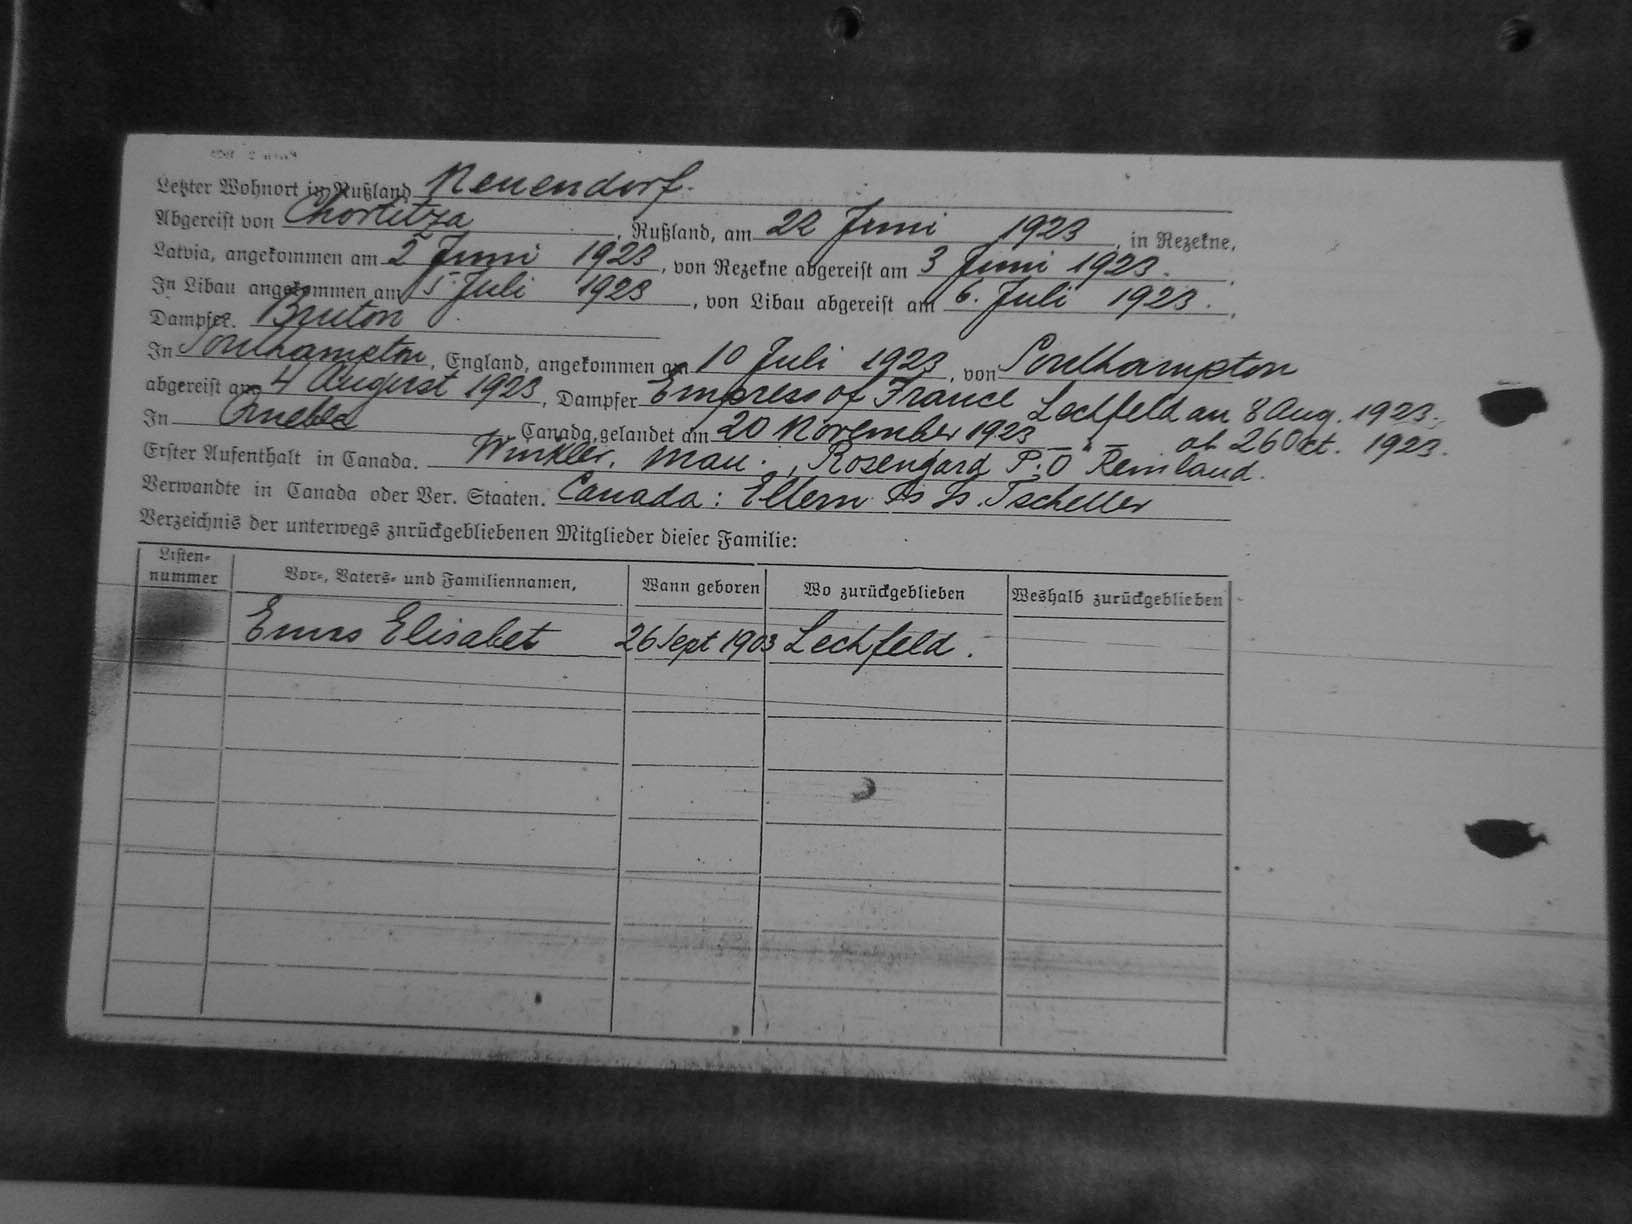 Letzter Wohnort in Rußland Neuendorf.
Abgereist von Chortitza, Rußland, am 22 Juni 1923, in Rezekne,
Latvia, angekommen am 2 Juni 1923, von Rezekne abgereist am 3 Juni 1923.
In Libau angekommen am 5. Juli 1923, von Libau abgereist am 6. Juli 1923.
Dampfer. Bruton
In Southampton, England, angekommen am 10 Juli 1923, von Southampton
abgereist am 4 August 1923, Dampfer Empress of France Lechfeld an 8 Aug. 1923.
In Quebec Canada, gelandet am 20 November 1923 — " — ab 26 Oct. 1923.
Erster Aufenthalt in Canada. Winkler, Man., Rosengard P.O Reinland.
Verwandte in Canada oder Ver. Staaten. Canada: Eltern Tschetter
Verzeichnis der unterwegs zurückgebliebenen Mitglieder dieser Familie:
Listen-nummer Vor-, Vaters- und Familiennamen, Wann geboren Wo zurückgeblieben Weshalb zurückgeblieben
Enns Elisabet 26 Sept 1903 Lechfeld.